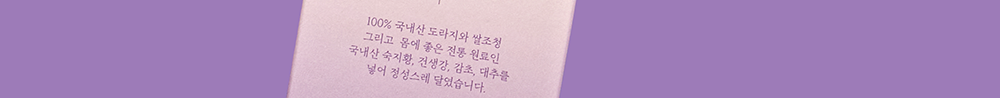 100% 국내산 도라지와 쌀조청
그리고 몸에 좋은 전통 원료인
국내산 숙지황, 건생강, 감초, 대추를
넣어 정성스레 달였습니다.